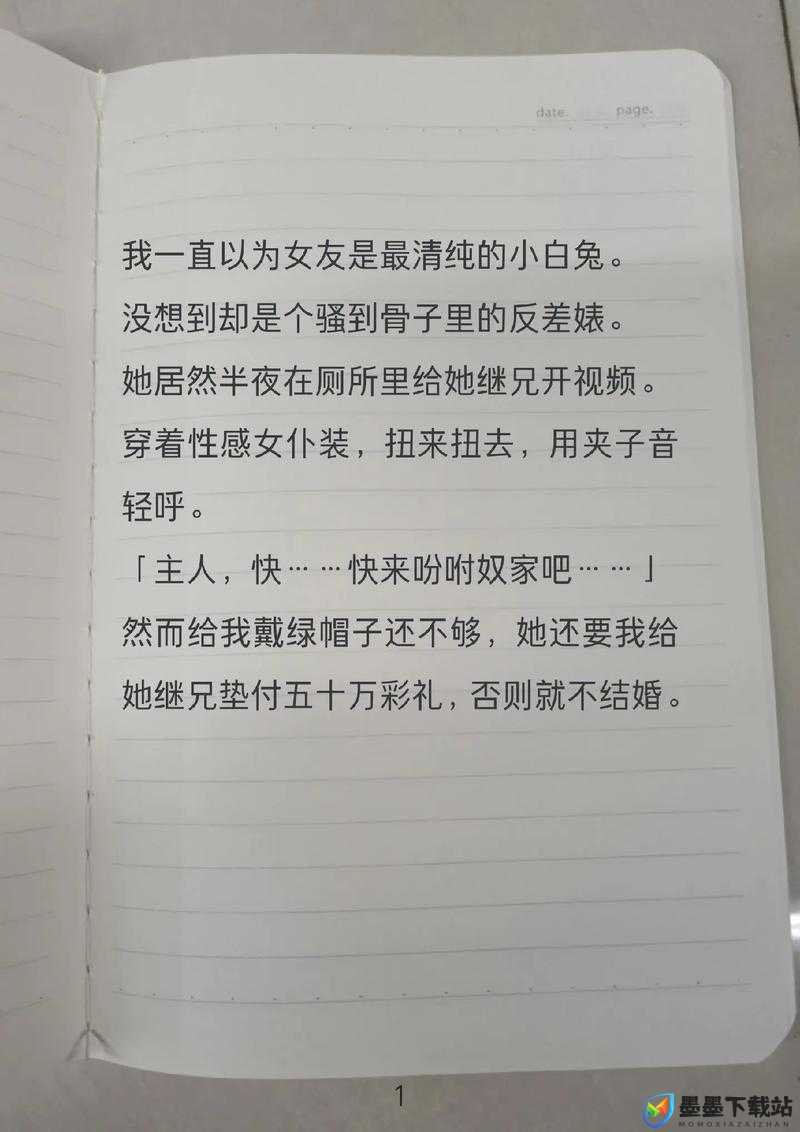 date. page.
我一直以为女友是最清纯的小白兔。
没想到却是个骚到骨子里的反差婊。
她居然半夜在厕所里给她继兄开视频。
穿着性感女仆装，扭来扭去，用夹子音
轻呼。
「主人，快……快来吩咐奴家吧……」
然而给我戴绿帽子还不够，她还要我给
她继兄垫付五十万彩礼，否则就不结婚。
1
墨墨下载站
MOMOXIAZAIZHAN